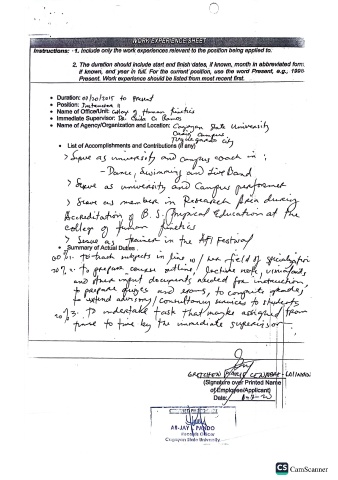 WORK EXPERIENCE SHEET
Instructions: 1. Include only the work experiences relevant to the position being applied to.
2. The duration should include start and finish dates, if known, month in abbreviated form, if known, and year in full. For the current position, use the word Present, e.g., 1998-Present. Work experience should be listed from most recent first.
• Duration: to Present
• Position: Instructor
• Name of Office/Unit: College of Human Kinetics
• Immediate Supervisor: Dr. Ramos
• Name of Agency/Organization and Location: Cagayan State University
Campus
Tuguegarao City
• List of Accomplishments and Contributions (if any)
> Serve as university and campus coach in :
- Dance, Swimming and Live Band
> Serve as university and campus performer
> Serve as member in Research Area during
Accreditation of B.S. Physical Education at the
College of Human Kinetics
> Serve as trainer in the Festival
• Summary of Actual Duties
60% 1. To teach subjects in line w/ field of specialization
20% 2. To prepare course outline, lecture note, visual aids
and other input documents needed for instruction,
to prepare quizzes and exams, to compute grades,
to extend advisory/consultancy services to students
20% 3. To undertake task that maybe assigned from
time to time by the immediate supervisor
GRETCHEN
(Signature over Printed Name
of Employee/Applicant)
Date:
AR-JAY PANDO
Cagayan State University
CS CamScanner